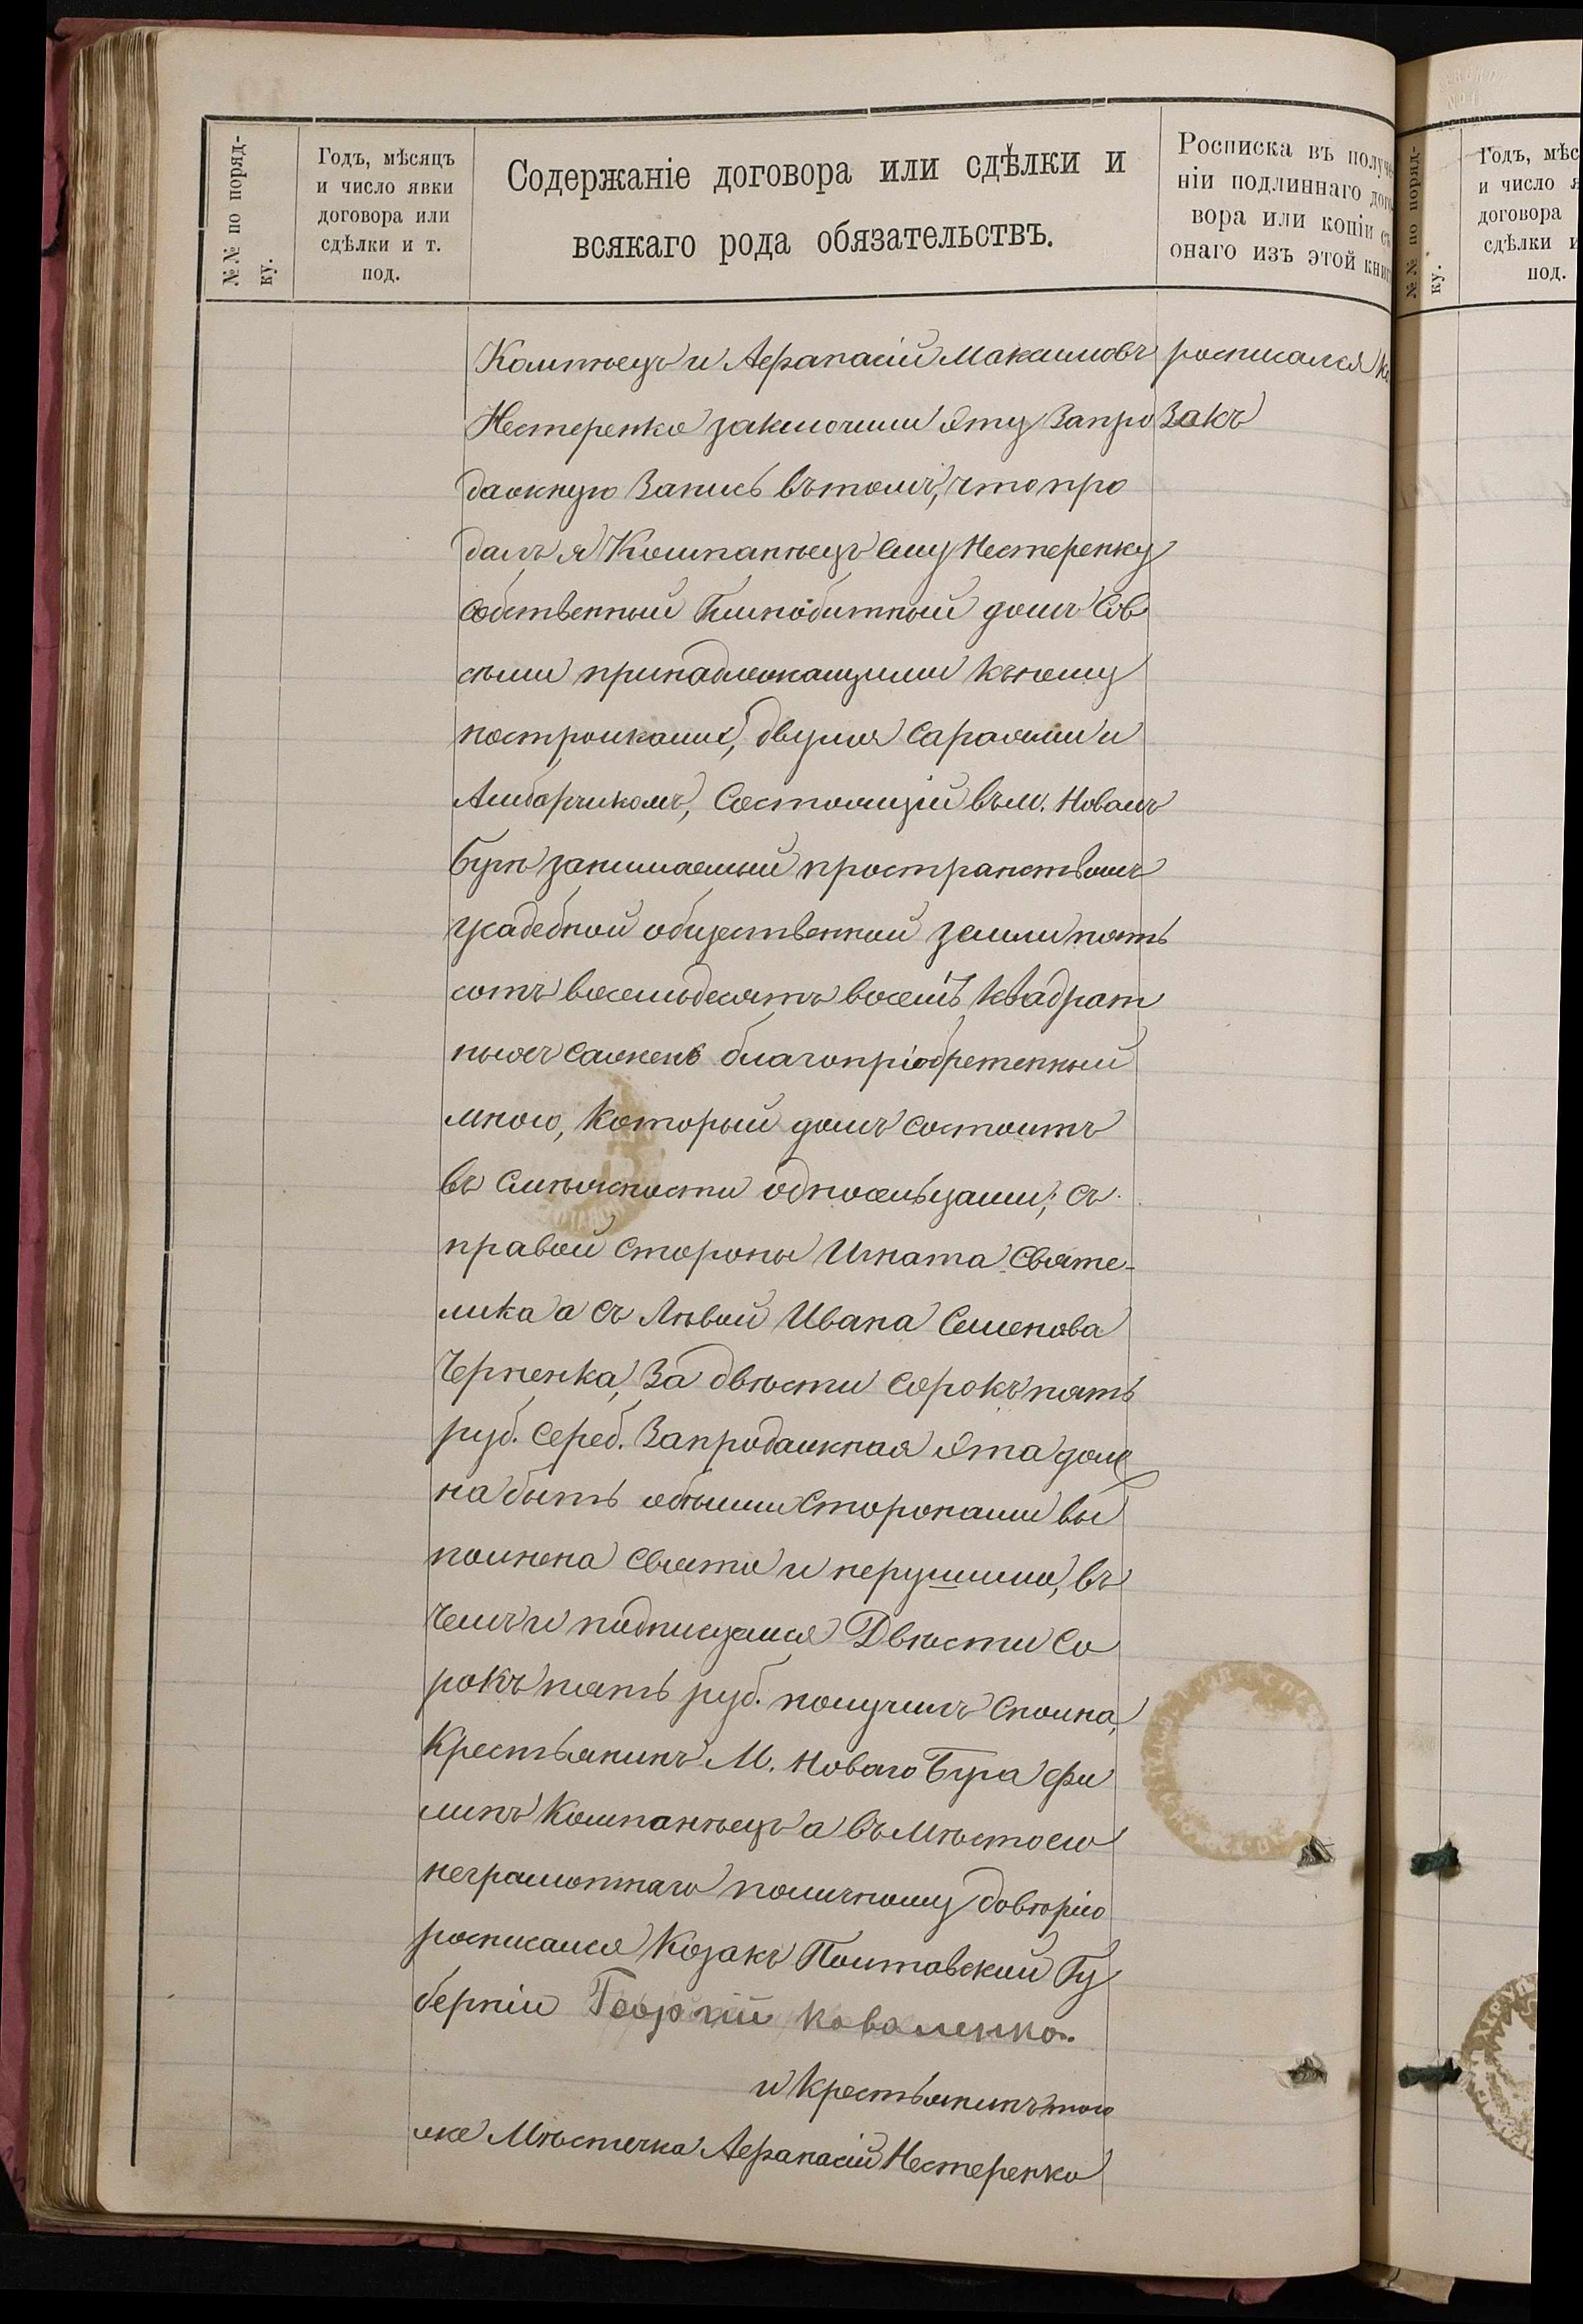 №№ по поряд-
ку.
Годъ, мѣсяцъ
и число явки
договора или
сдѣлки и т.
под.
Содержаніе договора или сдѣлки и
всякаго рода обязательствъ.
Росписка въ получе
ніи подлиннаго дого
вора или копіи съ
онаго изъ этой книг
Компнѣецъ и Афанасій Максимовъ
Нестеренко заключили эту Запро
дажную Запись въ томъ, что про
далъ я Компанѣецъ ему Нестеренку
собственный Глинобитный домъ Сов
сѣми принадлежащими къ нему
постройками, двумя Сараями и
Амбарчикомъ, Состоящій въ м. Новомъ
Бугѣ занимаемый пространствомъ
усадебной общественной земли пять
сотъ восемьдесятъ восемь квадрат
ныхъ сажень благопріобретенный
мною, который домъ состоитъ
въ Смѣжности односельцами; съ
правой стороны Игната Святе-
лика а съ Лѣвой Ивана Семенова
Черненка, За двѣсти сорокъ пять
руб. Сереб. Запродажная эта долж
на быть обѣими Сторонами вы
полнена Свято и нерушимо, въ
чемъ и подписуемся Двѣсти Со
рокъ пять руб. получилъ Сполна,
Крестьянинъ М. Новаго Буга Фи
липъ Компанѣецъ а въ мѣсто его
неграмотнаго поличному довѣрію
росписался Козакъ Полтавской Гу
берніи Георгій Коваленко.
и Крестьянинъ того
же Мѣстечка Афанасій Нестеренко
росписался Ко
Закъ
№№ по поряд-
ку.
Годъ, мѣс
и число я
договора
сдѣлки и
под.